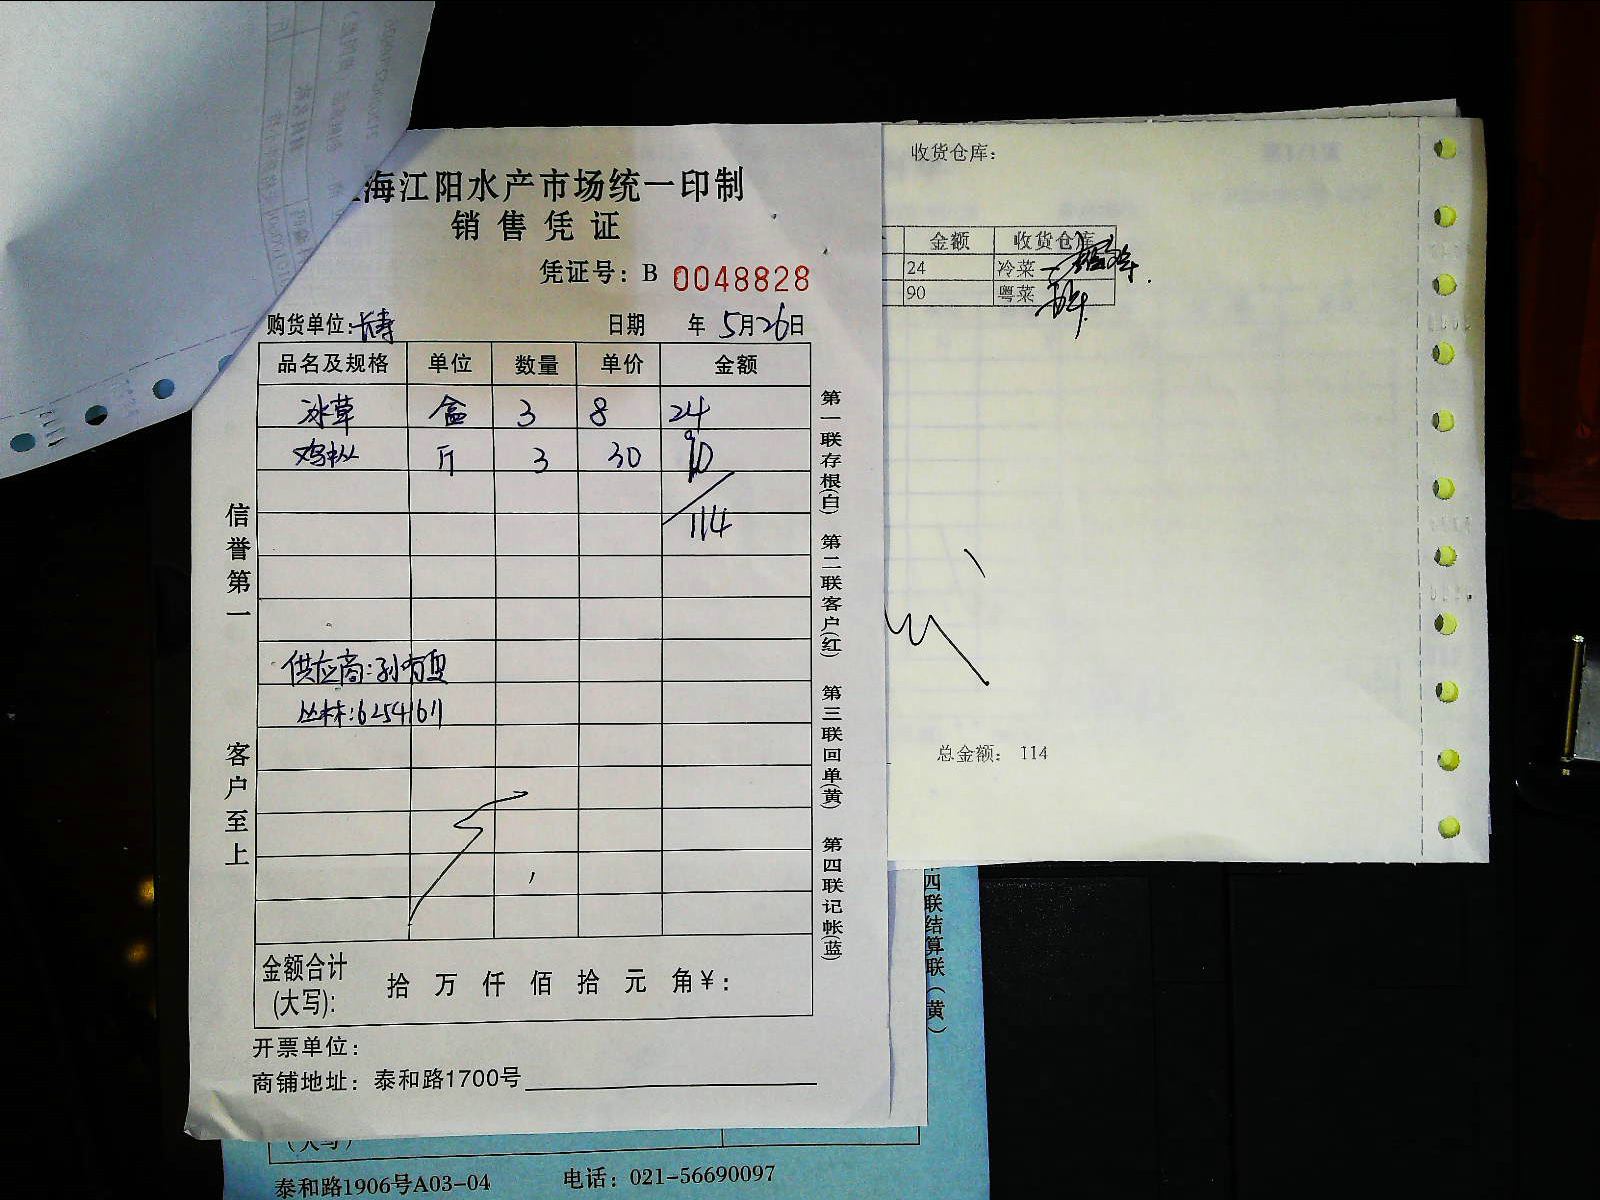 海江阳水产市场统一印制
销售凭证
凭证号：B 0048828
购货单位：长寿
日期 年 5月26日
品名及规格 单位 数量 单价 金额
冰草 盒 3 8 24
鸡枞 斤 3 30 90
114
供应商：孙有勇
丛林：62541611
金额合计
(大写)：
拾 万 仟 佰 拾 元 角 ¥：
开票单位：
商铺地址：泰和路1700号
信誉第一
客户至上
第一联存根(白) 第二联客户(红) 第三联回单(黄) 第四联记帐(蓝)
收货仓库：
金额 收货仓库
24 冷菜
90 粤菜
总金额： 114
四联结算联（黄）
（大写）
泰和路1906号A03-04 电话：021-56690097